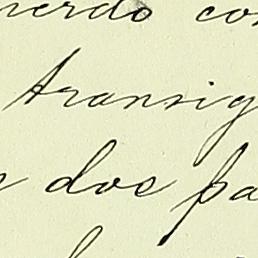 uerdo con
transig
dos pa